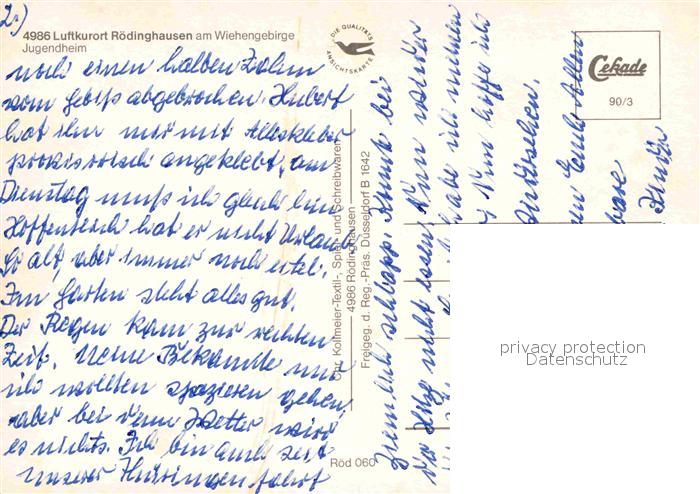 2.)
4986 Luftkurort Rödinghausen am Wiehengebirge
Jugendheim
noch einen halben Zahn
vom Gebiß abgebrochen. Hubert
hat ihn mir mit Alleskleber
provisorisch angeklebt, am
Dienstag muß ich gleich hin
Hoffentlich hat er nicht Urlaub.
So alt, aber immer noch eitel.
Im Garten steht alles gut.
Der Regen kam zur rechten
Zeit. Meine Bekannte und
ich wollten spazieren gehen,
aber bei dem Wetter wird
es nichts. Ich bin auch seit
unserer Thüringenfahrt
ziemlich schlapp. Konnte bei
der Hitze nicht essen. Nun wieder
habe ich meinen
Nun hoffe ich
Wiedersehen.
Euch Allen
Kinder
DIE QUALITÄTS
ANSICHTSKARTE
Cekade
90/3
Chr. Kollmeier-Textil-, Spiel- und Schreibwaren
4986 Rödinghausen
Freigeg. d. Reg.-Präs. Düsseldorf B 1642
Röd 060
privacy protection
Datenschutz